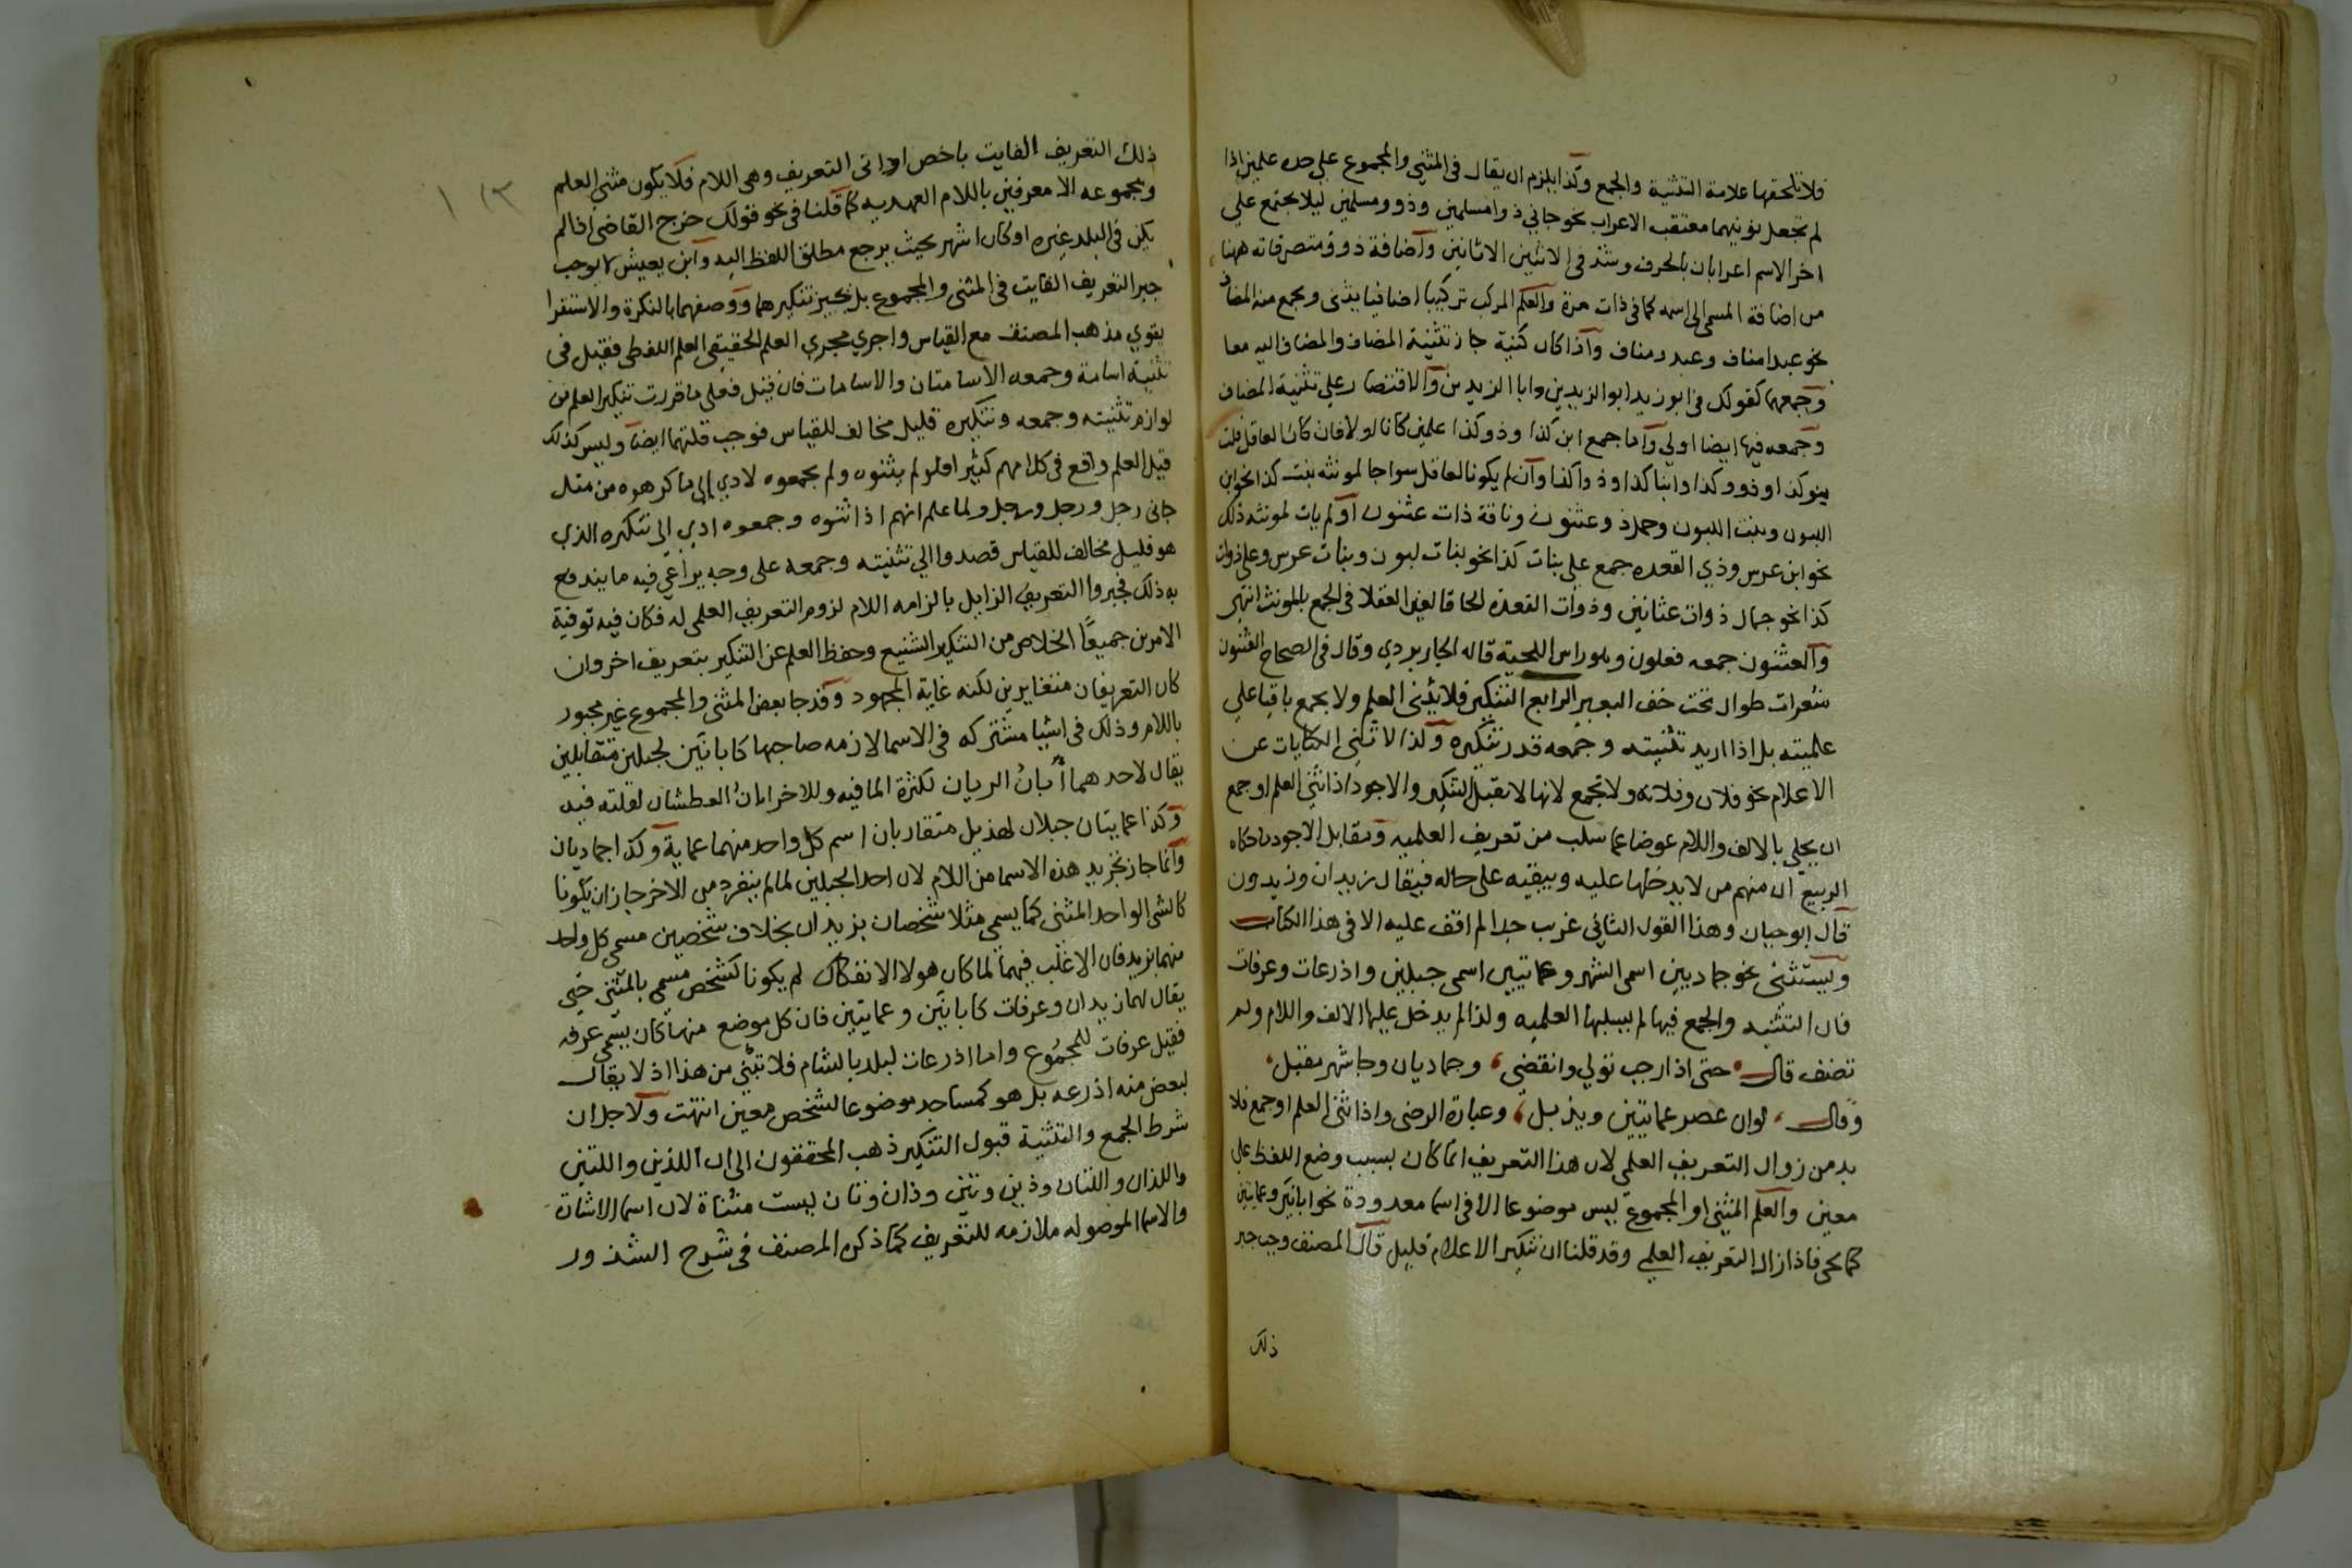 فلا تلحقها علامة التثنية والجمع وكذا يلزم ان يقال في المثني والمجموع علي حده علمين اذا
لم تجعل نونيهما معتقب الاعراب نحو جاني ذوا مسلمين وذوو مسلمين ليلا يجتمع علي
اخر الاسم اعرابان بالحرف وشذ في الاثنين الاثانين واضافة ذو ومتصرفاته ههنا
من اضافة المسمي الي اسمه كما في ذات مرة والعلم المركب تركيبا اضافيا يثنى ويجمع منه المضاف
نحو عبدا مناف وعبدو مناف واذا كان كنية جاز تثنية المضاف والمضاف اليه معا
وجمعهما كقولك في ابو زيد ابوا الزيدين وابا الزيدين والاقتصار علي تثنية المضاف
وجمعه فيها ايضا اولي واما جمع ابن كذا وذو كذا علمين كانا او لا فان كانا لعاقل قلت
بنو كذا وذوو كذا وابنا كذا وذوا كذا وان لم يكونا لعاقل سواجا لمونثه بنت كذا نحو ابن
اللبون وبنت اللبون وجمل ذو عثنون وناقة ذات عثنون او لم يات لمونثه ذلك
نحو ابن عرس وذي القعده جمع علي بنات كذا نحو بنات لبون وبنات عرس وعلي ذوات
كذا نحو جمال ذوات عثانين وذوات القعدة الحاقا لغير العقلا في الجمع بالمونث انتهى
والعثنون جمعه فعلون وهو راس اللحية قاله الجاربردي وقال في الصحاح العثنون
شعرات طوال تحت حنك البعير الرابع التنكير فلا يثنى العلم ولا يجمع باقيا علي
علميته بل اذا اريد تثنيته وجمعه قدر تنكيره ولذا لا تثنى الكنايات عن
الاعلام نحو فلان وفلانه ولا تجمع لانها لا تقبل التنكير والاجود اذا ثني العلم او جمع
ان يحلي بالالف واللام عوضا عما سلب من تعريف العلميه ومقابل الاجود ما حكاه
الربيع ان منهم من لا يدخلها عليه ويبقيه على حاله فيقال زيدان وزيدون
قال ابو حيان وهذا القول الثاني غريب جدا لم اقف عليه الا في هذا الكتاب
ويستثنى نحو جماديين اسمي الشهر وعمايتين اسمي جبلين واذرعات وعرفات
فان التثنيه والجمع فيها لم يسلبها العلميه ولذا لم يدخل عليها الالف واللام ولم
تضف قال حتى اذا رجب تولي وانقضى وجماديان وجا شهر مقبل
وقال لوان عصم عمايتين ويذبل وعبارة الرضى واذا ثنى العلم او جمع فلا
بد من زوال التعريف العلمي لان هذا التعريف انما كان بسبب وضع اللفظ علي
معين والعلم المثنى او المجموع ليس موضوعا الا في اسما معدودة نحو ابانين وعمايتين
كما يجي فاذا زال التعريف العلمي وقد قلنا ان تنكير الاعلام قليل قال المصنف وجب جبر
ذلك
١٢٣
ذلك التعريف الفايت باخص اداتى التعريف وهى اللام فلا يكون مثني العلم
ومجموعه الا معرفين باللام العهديه كما قلنا في نحو قولك خرج القاضي اذا لم
يكن في البلد غيره او كان اشهر بحيث يرجع مطلق اللفظ اليه وابن يعيش لا يوجب
جبر التعريف الفايت في المثنى والمجموع بل يجيز تنكيرهما ووصفهما بالنكرة والاستقرا
يقوي مذهب المصنف مع القياس واجري مجري العلم الحقيقي العلم اللفظي فقيل في
تثنية اسامة وجمعه الاسامتان والاسامات فان قيل فعلي ما قررت تنكير العلم من
لوازم تثنيته وجمعه وتنكيره قليل مخالف للقياس فوجب قلتهما ايضا وليس كذلك
قيل العلم واقع في كلامهم كثيرا فلو لم يثنوه ولم يجمعوه لادي الي ما كرهوه من مثل
جاني رجل ورجل ورجل ولما علم انهم اذا ثنوه وجمعوه ادي الي تنكيره الذي
هو قليل مخالف للقياس قصدوا الي تثنيته وجمعه على وجه يراعي فيه ما يندفع
به ذلك فجبروا التعريف الزايل بالزامه اللام لزوم التعريف العلمي له فكان فيه توفية
الامرين جميعًا الخلاص من التنكير الشنيع وحفظ العلم عن التنكير بتعريف اخر وان
كان التعريفان متغايرين لكنه غاية المجهود وقد جا بعض المثنى والمجموع غير مجبور
باللام وذلك في اشيا مشتركه في الاسم لازمه صاحبها كابانَين لجبلين متقابلين
يقال لاحدهما أَبانُ الريان لكثرة الما فيه وللاخر ابانُ العطشان لقلته فيه
وكذا عمايتان جبلان لهذيل متقاربان اسم كل واحد منهما عماية وكذا جماديان
وانما جاز تجريد هذه الاسما من اللام لان احد الجبلين لما لم ينفرد من الاخر جاز ان يكونا
كالشي الواحد المثنى كما يسمى مثلا شخصان بزيدان بخلاف شخصين مسمى كل واحد
منهما بزيد فان الاغلب فيهما لما كان هو لا الانفكاك لم يكونا كشخص مسمي بالمثني حتي
يقال لهما زيدان وعرفات كابانَين وعمايتين فان كل موضع منها كان يسمي عرفه
فقيل عرفات للمجموع واما اذرعات لبلد بالشام فلا تبنى من هذا اذ لا يقال
لبعض منه اذرعه بل هو كمساجد موضوعا لشخص معين انتهت ولاجل ان
شرط الجمع والتثنية قبول التنكير ذهب المحققون الي ان اللذين واللتين
واللذان واللتان وذين وتين وذان وتان ليست مثناة لان اسما الاشارة
والاسما الموصوله ملازمه للتعريف كما ذكره المصنف في شرح الشذور